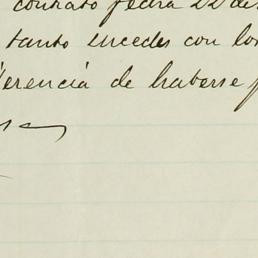 contrato fecha 22 de
tanto sucedes con los
erencia de haberse